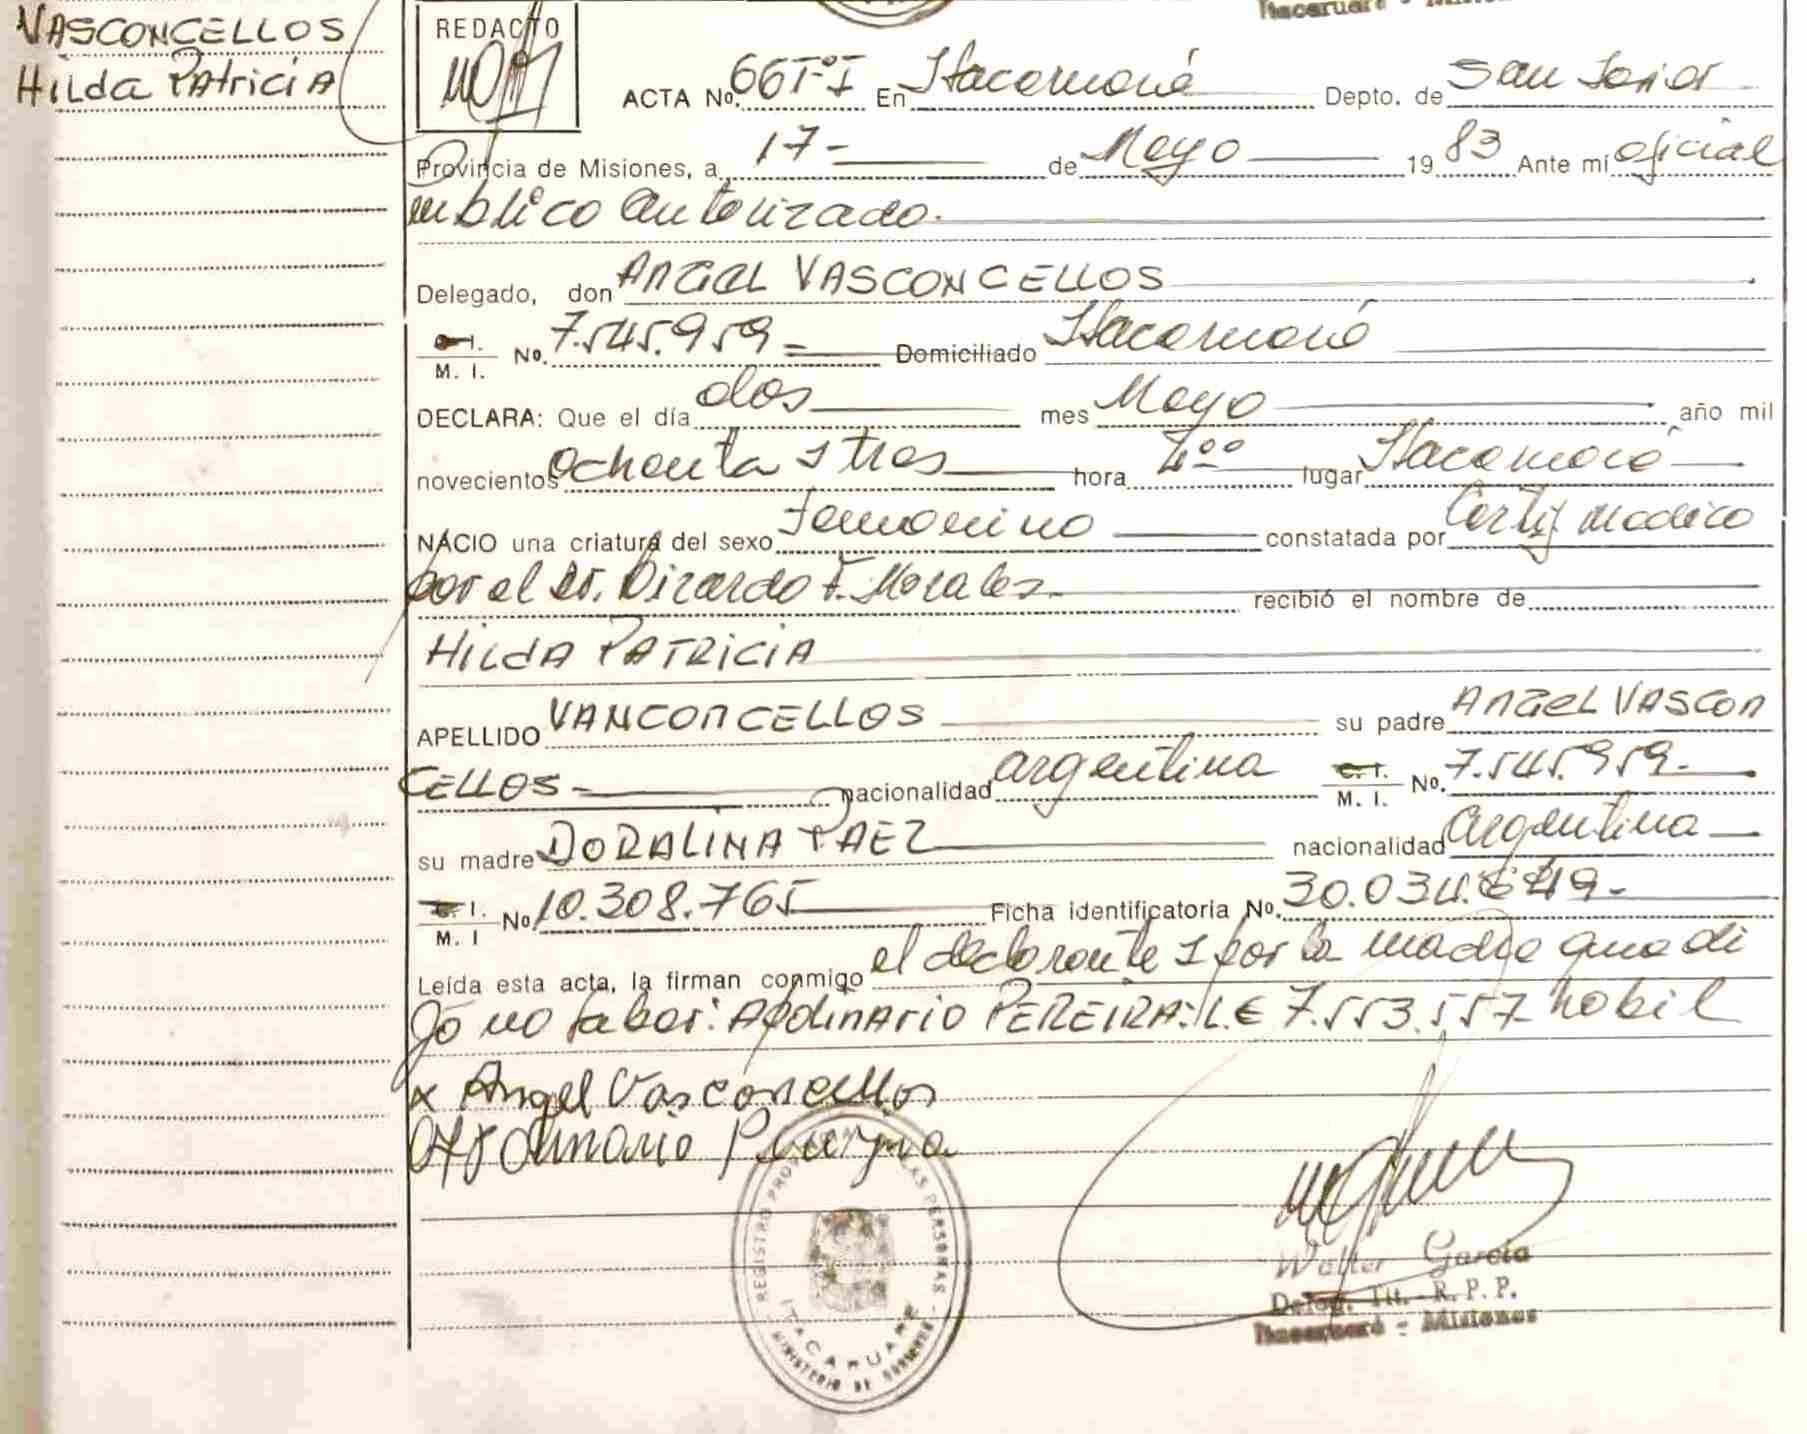 VASCONCELLOS
Hilda Patricia
REDACTO
Itacaruaré - Misiones
ACTA No. 66 Tº I En Itacaruaré Depto. de San Javier
Provincia de Misiones, a 17- de Mayo 1983 Ante mí oficial
publico autorizado.
Delegado, don ANGEL VASCONCELLOS
C. I. M. I. No. 7.545.959 Domiciliado Itacaruaré
DECLARA: Que el día dos mes Mayo año mil
novecientos ochenta y tres hora 4ºº lugar Itacaruaré
NACIO una criatura del sexo femenino constatada por Certif medico
por el Dr. F. Morales recibió el nombre de
HILDA PATRICIA
APELLIDO VANCONCELLOS su padre ANGEL VASCON
CELLOS nacionalidad argentina C. I. M. I. No. 7.545.959.
su madre DORALINA PAEZ nacionalidad argentina
C. I. M. I No. 10.308.765 Ficha identificatoria No. 30.034.649.
Leída esta acta, la firman conmigo el declarante y por la madre que di
jó no saber: PEREIRA: L.E 7.553.557 habil
x Angel Vasconcellos
REGISTRO PROVINCIAL DE LAS PERSONAS
ITACARUARE
MINISTERIO DE GOBIERNO
Walter García
Deleg. Tit. R. P. P.
Itacaruaré - Misiones